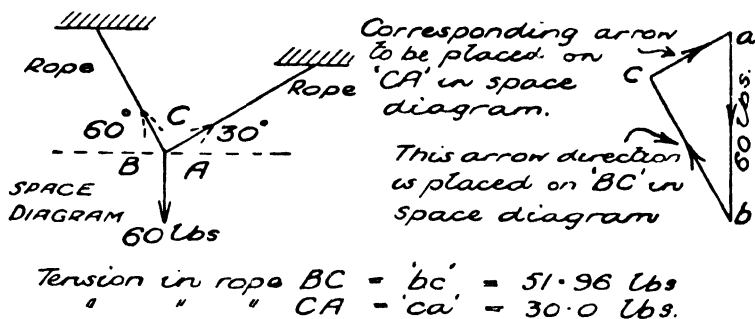 Rope
Rope
60°
C
30°
B
A
SPACE
DIAGRAM
60 lbs
Corresponding arrow
to be placed on
'CA' in space
diagram.
This arrow direction
is placed on 'BC' in
space diagram
a
c
60 lbs.
b
Tension in rope BC = 'bc' = 51·96 lbs
" " " CA = 'ca' = 30·0 lbs.